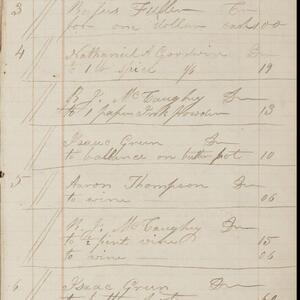 3 // Rufus Fuller Cr
for one dollar cash 00
4 // Nathaniel A Goodwin Dr
to 1 lb spice 1/6 19
// R. J. McCaughey Dr
to 1 paper Ink Powder 13
// Isaac Grun Dr
to ballence on butter pot 10
5 // Aaron Thompson Dr
to wine 06
// R. J. McCaughey Dr
to ½ pint wine 15
to wine 06
6 // Isaac Grun Dr